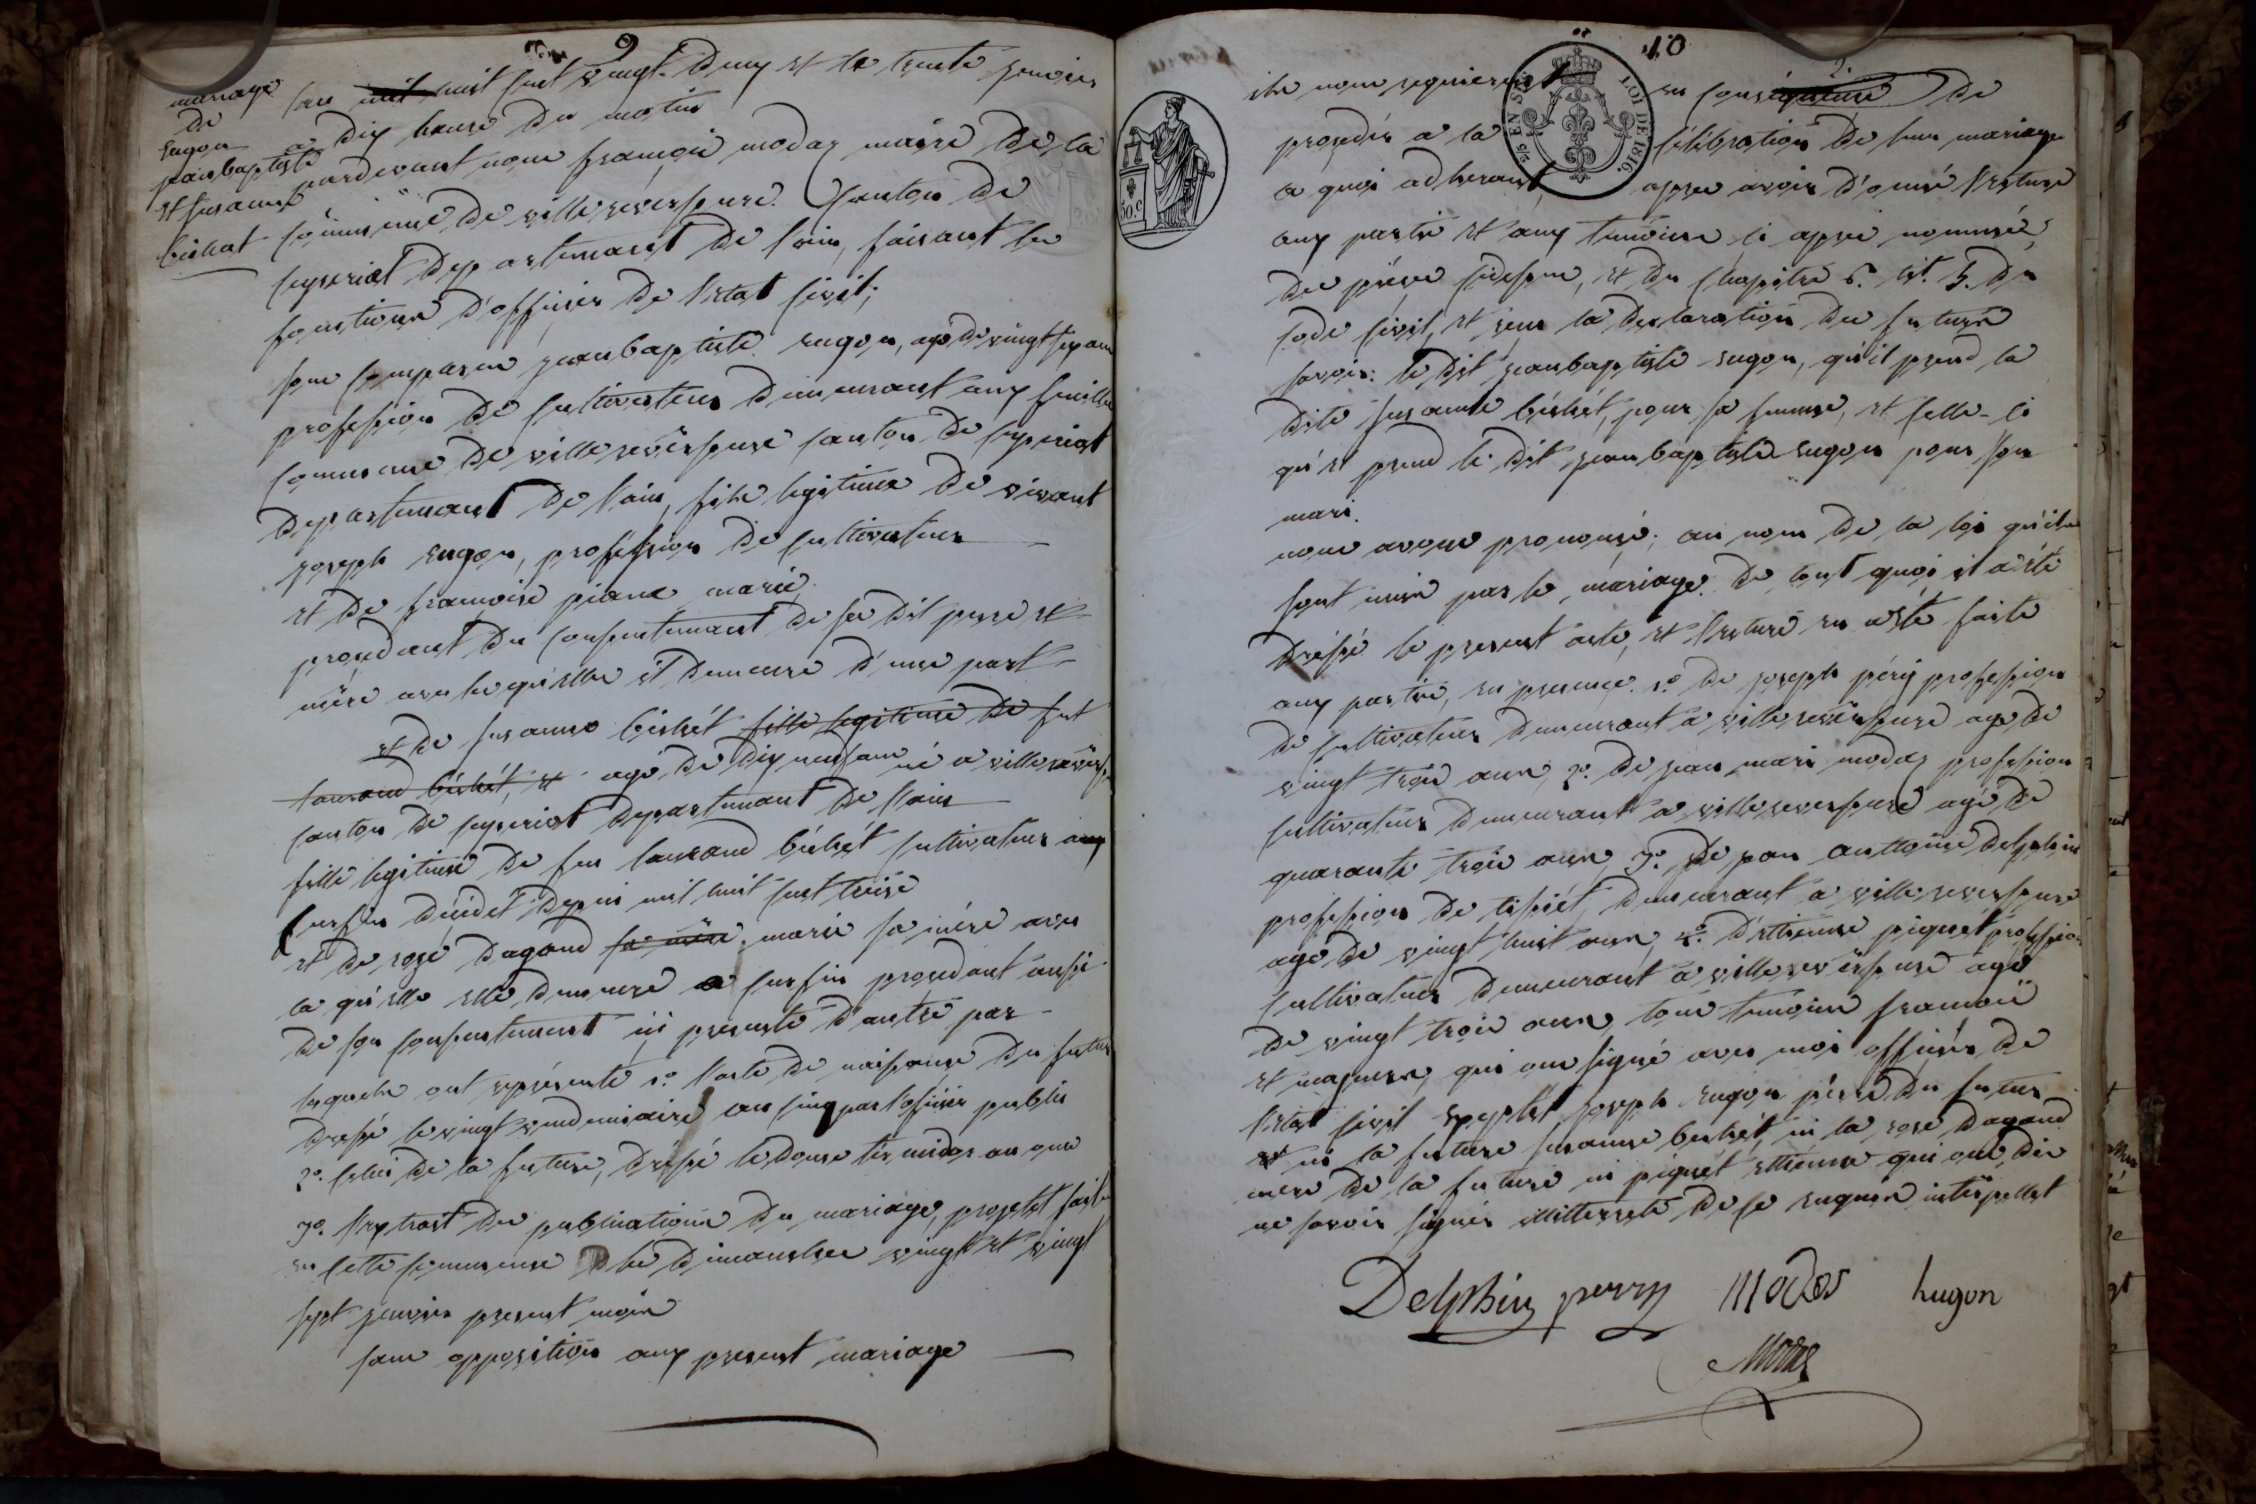 9
mariage
de
hugon
jean baptiste
et susanne
béchet
l'an mil huit cent vingt deux et le trente janvier
a dix heure du matin
pardevant nous françois modas maire de la
commune de villereversure canton de
ceyseriat departement de l'ain, faisant les
fonctions d'officier de l'etat civil;
sont comparu jean baptiste hugon, agé de vingt six ans
profession de cultivateur demeurant aux
commune de villereversure canton de ceyseriat
departement de l'ain, fils legitime de vivant
joseph hugon, profession de cultivateur
et de françoise marié
procedant du consentement de ses dit pere et
mère avec lesquelles il demeure d'une part
et de susanne béchét fille legitime de fut
laurand béchét, et agé de dix neuf ans né a villerevers
canton de ceyseriat departement de l'ain
fille legitime de feu laurand béchét cultivateur aux
décidét depuis mil huit cent treise
et de rose dagand sa mère marié sa mère avec
la quelle elle demeure a procedant aussi
de son consentement ici presente d'autre par
lesquels ont représenté 1º l'acte de naissance du futur
dressé le vingt vendemiaire an cinq par l'officier public
2º celui de la future, dréssé le douse termidor an onze
3º l'extrait des publications du mariage, projetét fait
en cette commune le dimanches vingt et vingt
sept janvier present mois
sans opposition aux present mariage
10
50.c
EN SUS
LOI DE 1816.
ils nous requierent en conséquence de
proceder a la célébration de leur mariage
a quoi adherant, apres avoir donné lecture
aux partie et aux temoins ci apres nommés,
des pièces cidessus, et du chapitre 6. tit. 5. du
code civil, et sur la declaration des future
savoir: le dit jean baptiste hugon, qu'il prend la
dite susanne béchét, pour sa femme, et celle-ci
qu'el prend le dit jean baptiste hugon pour son
mari.
nous avons prononsé; au nom de la loi qu'ils
sont unis par le mariage. de tout quoi il a été
dréssé le present acte, et lecture en a été faite
aux partie, en presence 1º de joseph péry profession
de cultivateur demeurant a villereversure agé de
vingt trois ans, 2º. de jean marie modas profession
cultivateur demeurant a villereversure agé de
quarante trois ans, 3º. de jean anttoine delphin
profession de tissiét, demeurant a villereversure
agé de vingt huit ans, 4º. d'ettienne piquét profession
cultivateur demeurant a villereversure agé
de vingt trois ans, tous temoins françois
et majeurs, qui ont signé avec moi officier de
l'etat civil exeptét joseph hugon pére du futur
et ni la future susanne béchét, ni la rose dagand
mere de la future ni piquét ettienne qui ont dis
ne savoir signer de ce enquis et intérpellét
Delphin perry Modas hugon
Modas